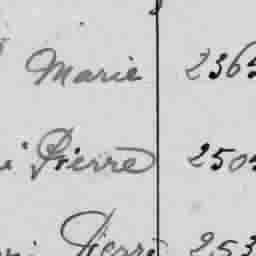 Marie 236
Pierre 250
Pierre 253